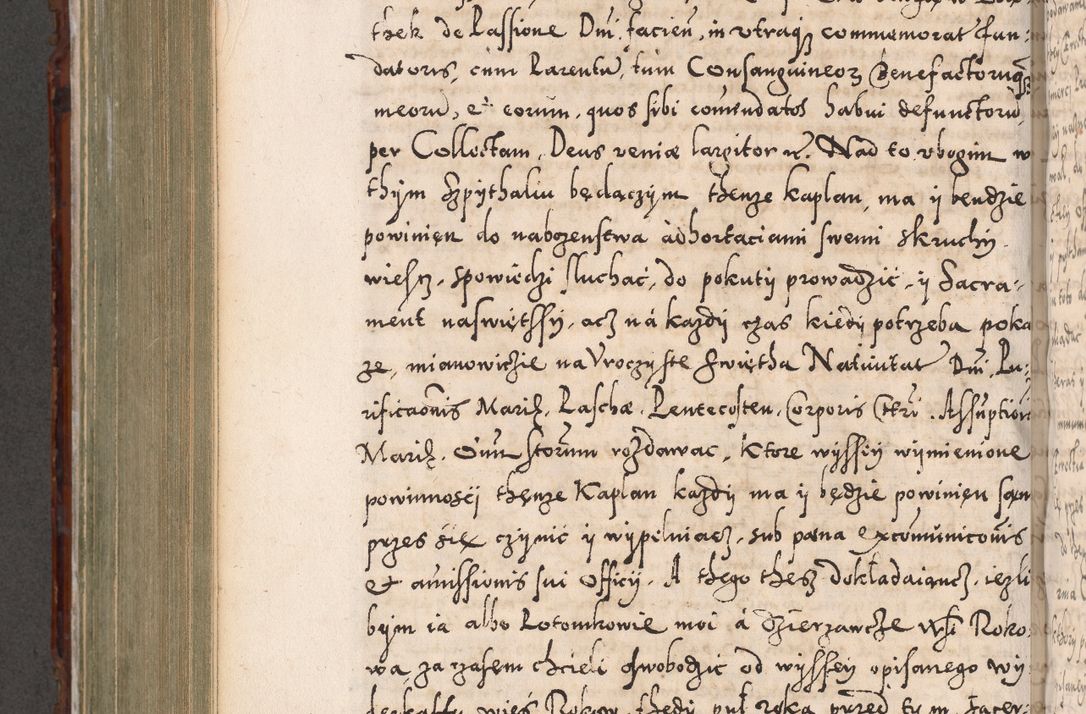 thek de Passione Dni facien, in utraq commemorat fun-
datoris, cum Parentu, tum Consanguineoz Benefactoruq
meoru, et eorum, quos sibi comendatos habui defunctoru,
per Collectam, Deus veniæ largitor rc. Nad to vbogim w
thym Szpythaliu będączym thenze kaplan, ma y bendzie
powinien do nabozenstwa adhortaciami swemi skruchy
wiesz, spowiedzi sluchać, do pokuty prowadzić, y Sacra-
ment naswiętssy, acz ná kazdy czas kiedy potrzeba poka
ze, mianowiczie na Vroczyste Swiętha Natiuitat Dni, Pu-
rificaonis Mariæ, Paschæ, Pentecosten, Corporis Chri, Assuptionis
Mariæ, Oium Storum rozdawac, Ktore wyssey wymienione
powinnosci thenze Kaplan kazdy ma y będzie powinien sam
przes się czynić y wypelniacz, sub pæna excomunicaonis
et amissionis sui Officij. A thego thesz dokładaiancz, iezli
bym ia albo Potomkowie moi á Dzierzawcze Wsi Roko
wa, za czasem chcieli oswobodzic od wyssey opisanego wy
derkaffu wies Rokow, thedy pul roka przed tym, facer-